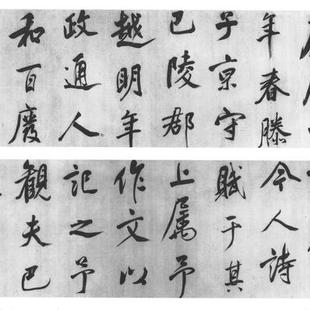 年春滕
子京守
巴陵郡
越明年
政通人
和百廢
今人詩
賦于其
上属予
作文以
記之予
觀夫巴